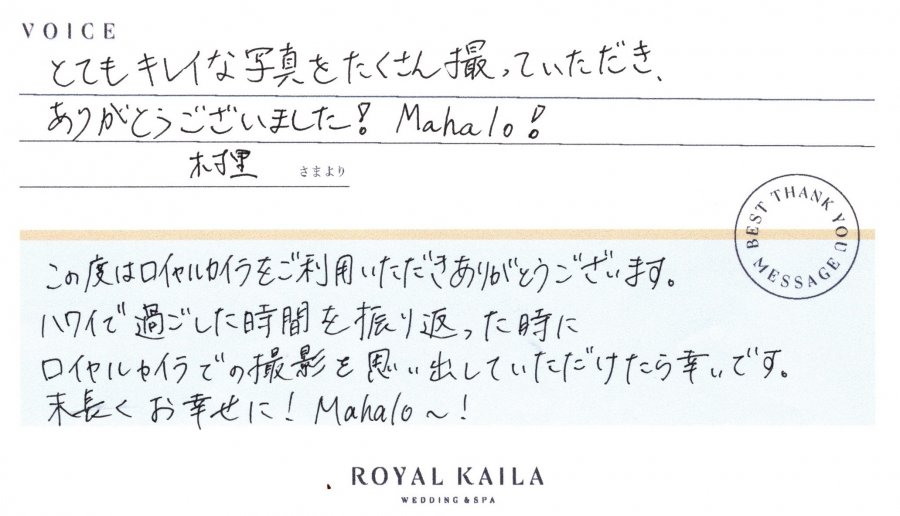 VOICE
とてもキレイな写真をたくさん撮っていただき、
ありがとうございました! Mahalo!
さまより
BEST THANK YOU MESSAGE
この度はロイヤルカイラをご利用いただきありがとうございます。
ハワイで過ごした時間を振り返った時に
ロイヤルカイラでの撮影を思い出していただけたら幸いです。
末長くお幸せに! Mahalo〜!
ROYAL KAILA
WEDDING & SPA